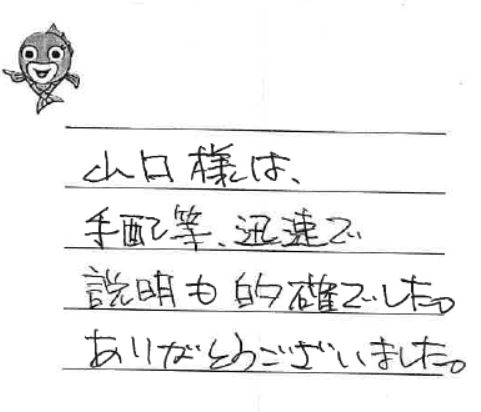 山口様は、
手配等、迅速で
説明も的確でした。
ありがとうございました。